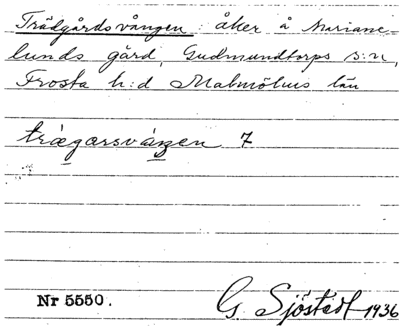 Trädgårdsvången: åker å Mariane-
lunds gård, Gudmundtorps s:n,
Frosta h:d Malmöhus län
trægarsvåŋen 7
Nr 5550.
G. Sjöstedt 1936